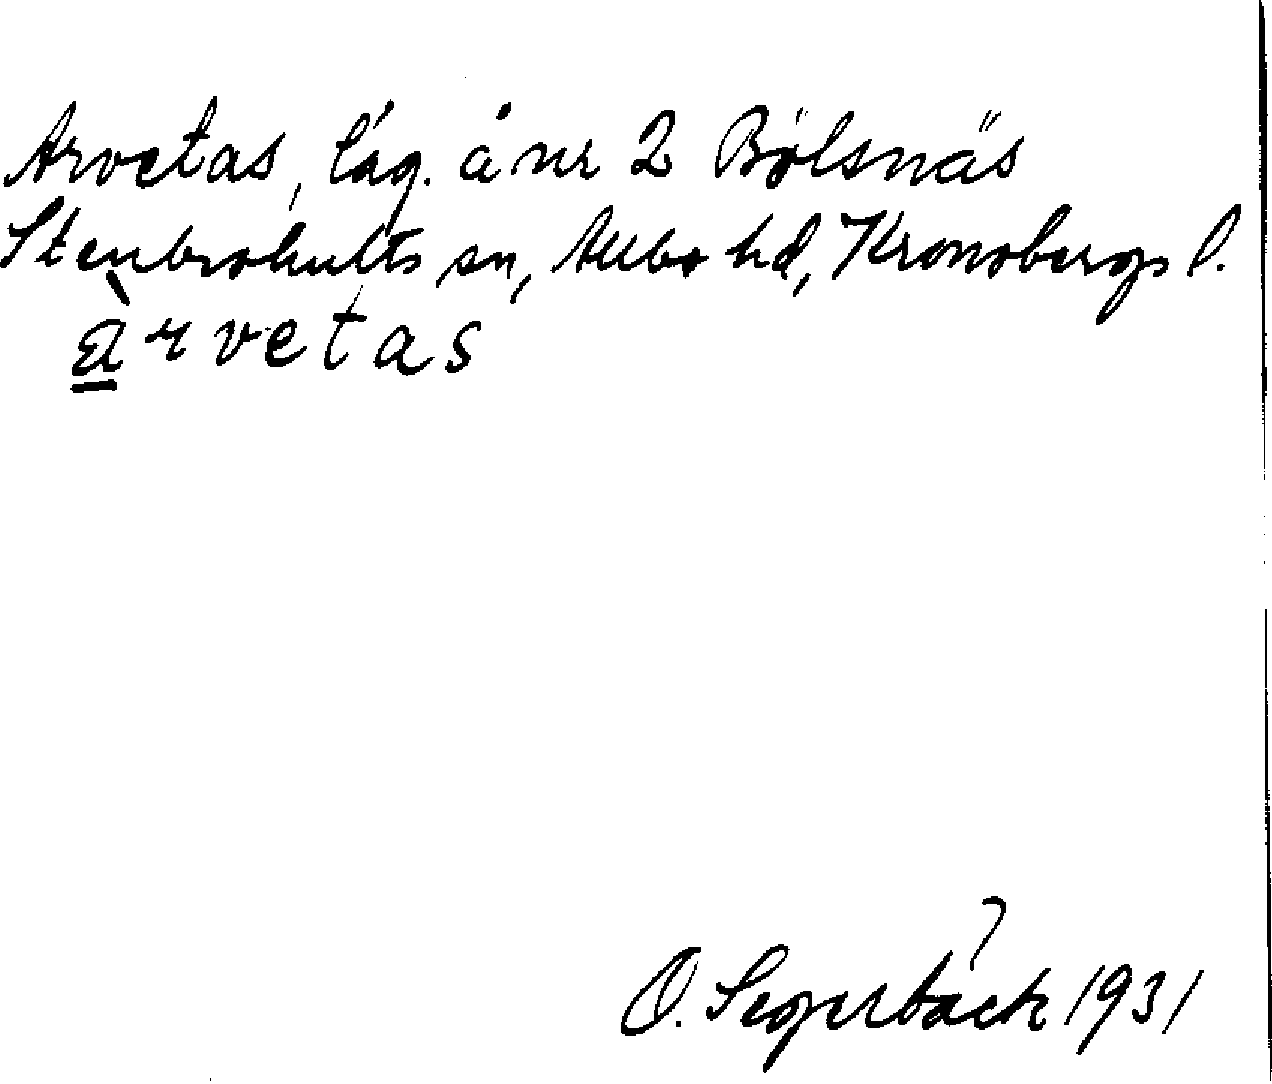 Arvetas, låg. å nr 2 Bölsnäs
Stenbrohults sn, Allbo hd, Kronobergs l.
àrvetas
O. Segerbäck 1931